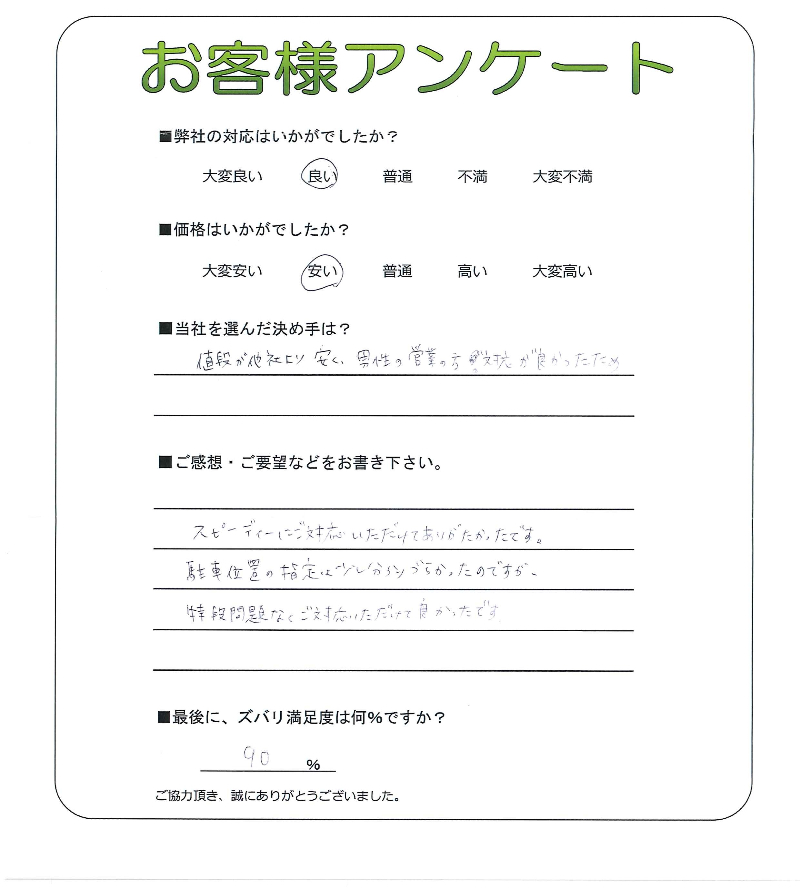 お客様アンケート
■弊社の対応はいかがでしたか？
大変良い 良い 普通 不満 大変不満
■価格はいかがでしたか？
大変安い 安い 普通 高い 大変高い
■当社を選んだ決め手は？
値段が他社より安く、男性の営業の方 対応が良かったため
■ご感想・ご要望などをお書き下さい。
スピーディーにご対応いただけてありがたかったです。
駐車位置の指定は少し分かりづらかったのですが、
特段問題なくご対応いただけて良かったです
■最後に、ズバリ満足度は何%ですか？
90 %
ご協力頂き、誠にありがとうございました。